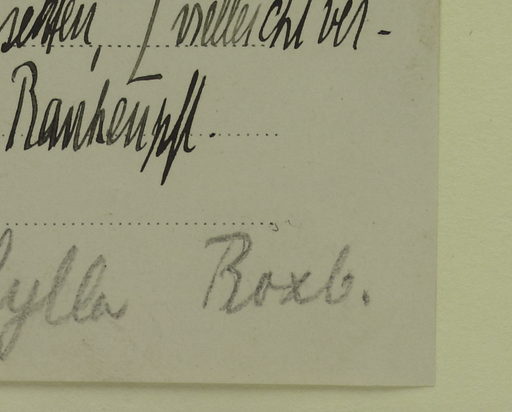 vielleicht ver-
Rankenpfl.
hylla Roxb.